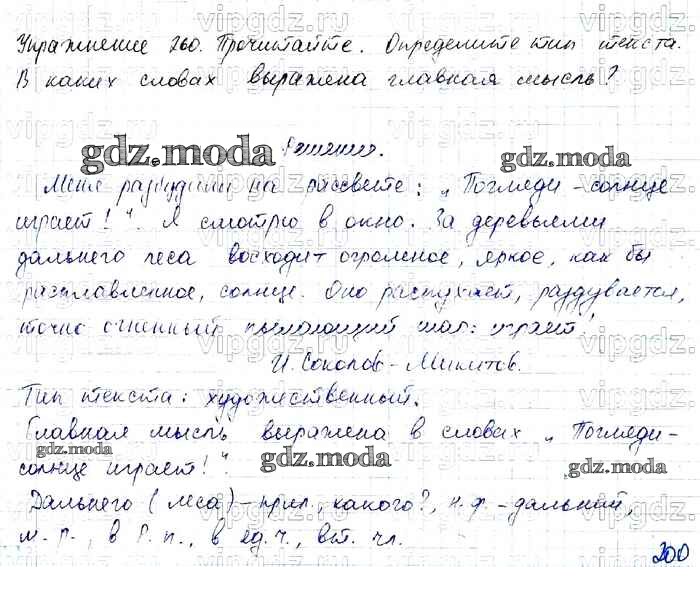 Упражнение 260. Прочитайте. Определите тип текста.
В каких словах выражена главная мысль?
gdz.moda Решение.
Меня разбудили на рассвете: „Погляди - солнце
играет!". Я смотрю в окно. За деревьями
дальнего леса восходит огромное, яркое, как бы
расплавленное, солнце. Оно распухает, раздувается,
точно огненный пылающий шар: играет!
И. Соколов-Микитов.
Тип текста: художественный.
Главная мысль выражена в словах „Погляди-
солнце играет!".
Дальнего (леса) - прил., какого?, н.ф. - дальний,
м.р., в Р.п., в ед.ч.,
200
vipgdz.ru
gdz.moda
gdz.moda
gdz.moda